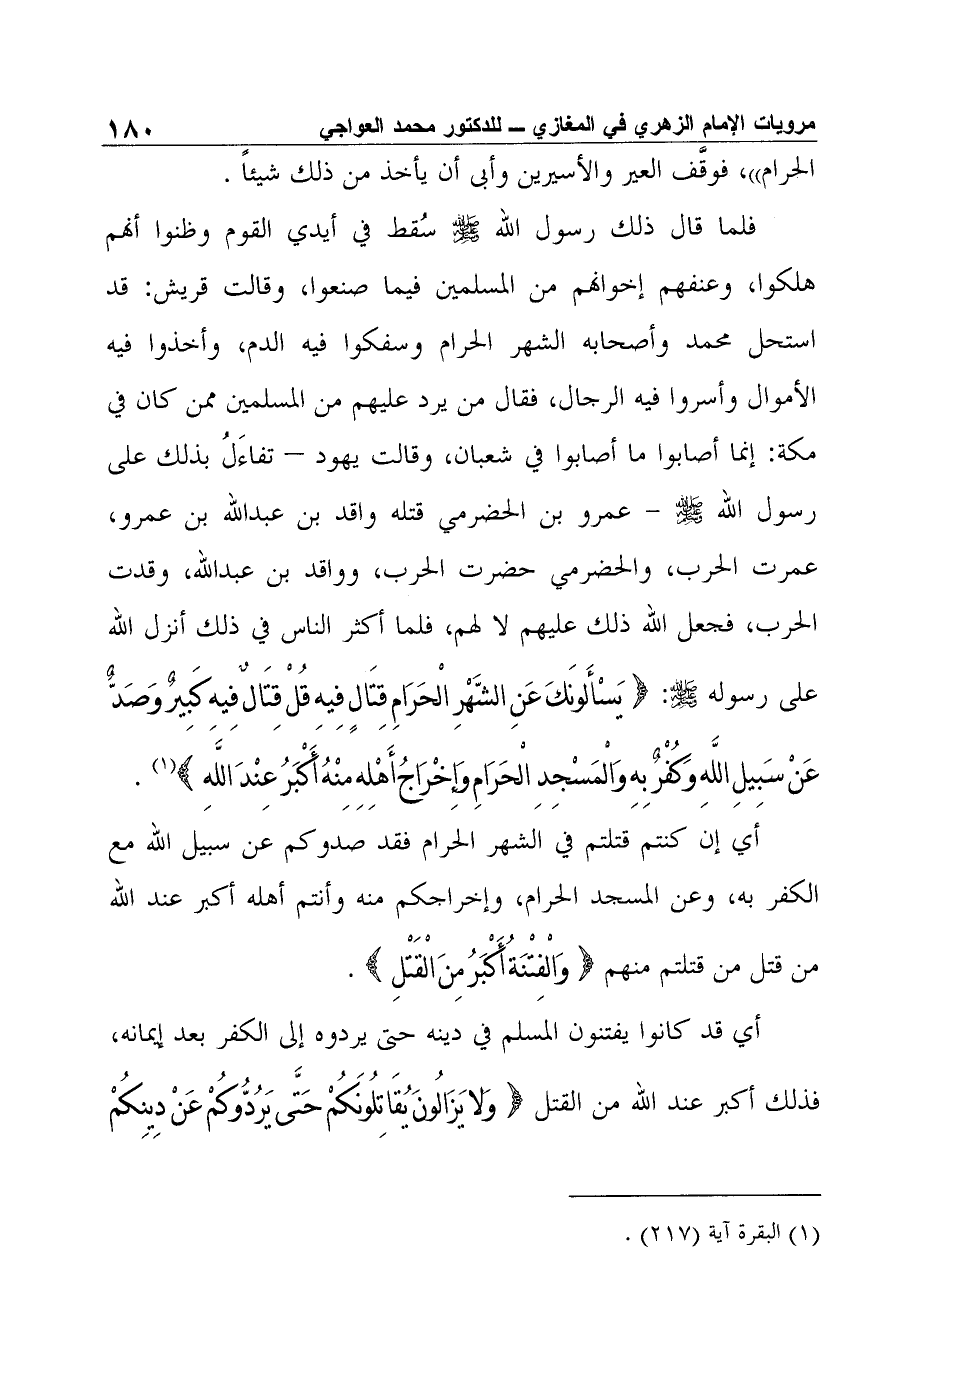 مرويات الإمام الزهري في المغازي ــ للدكتور محمد العواجي ١٨٠
الحرام))، فوقَّف العير والأسيرين وأبى أن يأخذ من ذلك شيئاً .
فلما قال ذلك رسول الله ﷺ سُقط في أيدي القوم وظنوا أنهم
هلكوا، وعنفهم إخوانهم من المسلمين فيما صنعوا، وقالت قريش: قد
استحل محمد وأصحابه الشهر الحرام وسفكوا فيه الدم، وأخذوا فيه
الأموال وأسروا فيه الرجال، فقال من يرد عليهم من المسلمين ممن كان في
مكة: إنما أصابوا ما أصابوا في شعبان، وقالت يهود – تفاءَلُ بذلك على
رسول الله ﷺ – عمرو بن الحضرمي قتله واقد بن عبدالله بن عمرو،
عمرت الحرب، والحضرمي حضرت الحرب، وواقد بن عبدالله، وقدت
الحرب، فجعل الله ذلك عليهم لا لهم، فلما أكثر الناس في ذلك أنزل الله
على رسوله ﷺ: ﴿ يَسْأَلُونَكَ عَنِ الشَّهْرِ الْحَرَامِ قِتَالٍ فِيهِ قُلْ قِتَالٌ فِيهِ كَبِيرٌ وَصَدٌّ
عَنْ سَبِيلِ اللَّهِ وَكُفْرٌ بِهِ وَالْمَسْجِدِ الْحَرَامِ وَإِخْرَاجُ أَهْلِهِ مِنْهُ أَكْبَرُ عِنْدَ اللَّهِ ﴾(١) .
أي إن كنتم قتلتم في الشهر الحرام فقد صدوكم عن سبيل الله مع
الكفر به، وعن المسجد الحرام، وإخراجكم منه وأنتم أهله أكبر عند الله
من قتل من قتلتم منهم ﴿ وَالْفِتْنَةُ أَكْبَرُ مِنَ الْقَتْلِ ﴾ .
أي قد كانوا يفتنون المسلم في دينه حتى يردوه إلى الكفر بعد إيمانه،
فذلك أكبر عند الله من القتل ﴿ وَلا يَزَالُونَ يُقَاتِلُونَكُمْ حَتَّى يَرُدُّوكُمْ عَنْ دِينِكُمْ
(١) البقرة آية (٢١٧) .